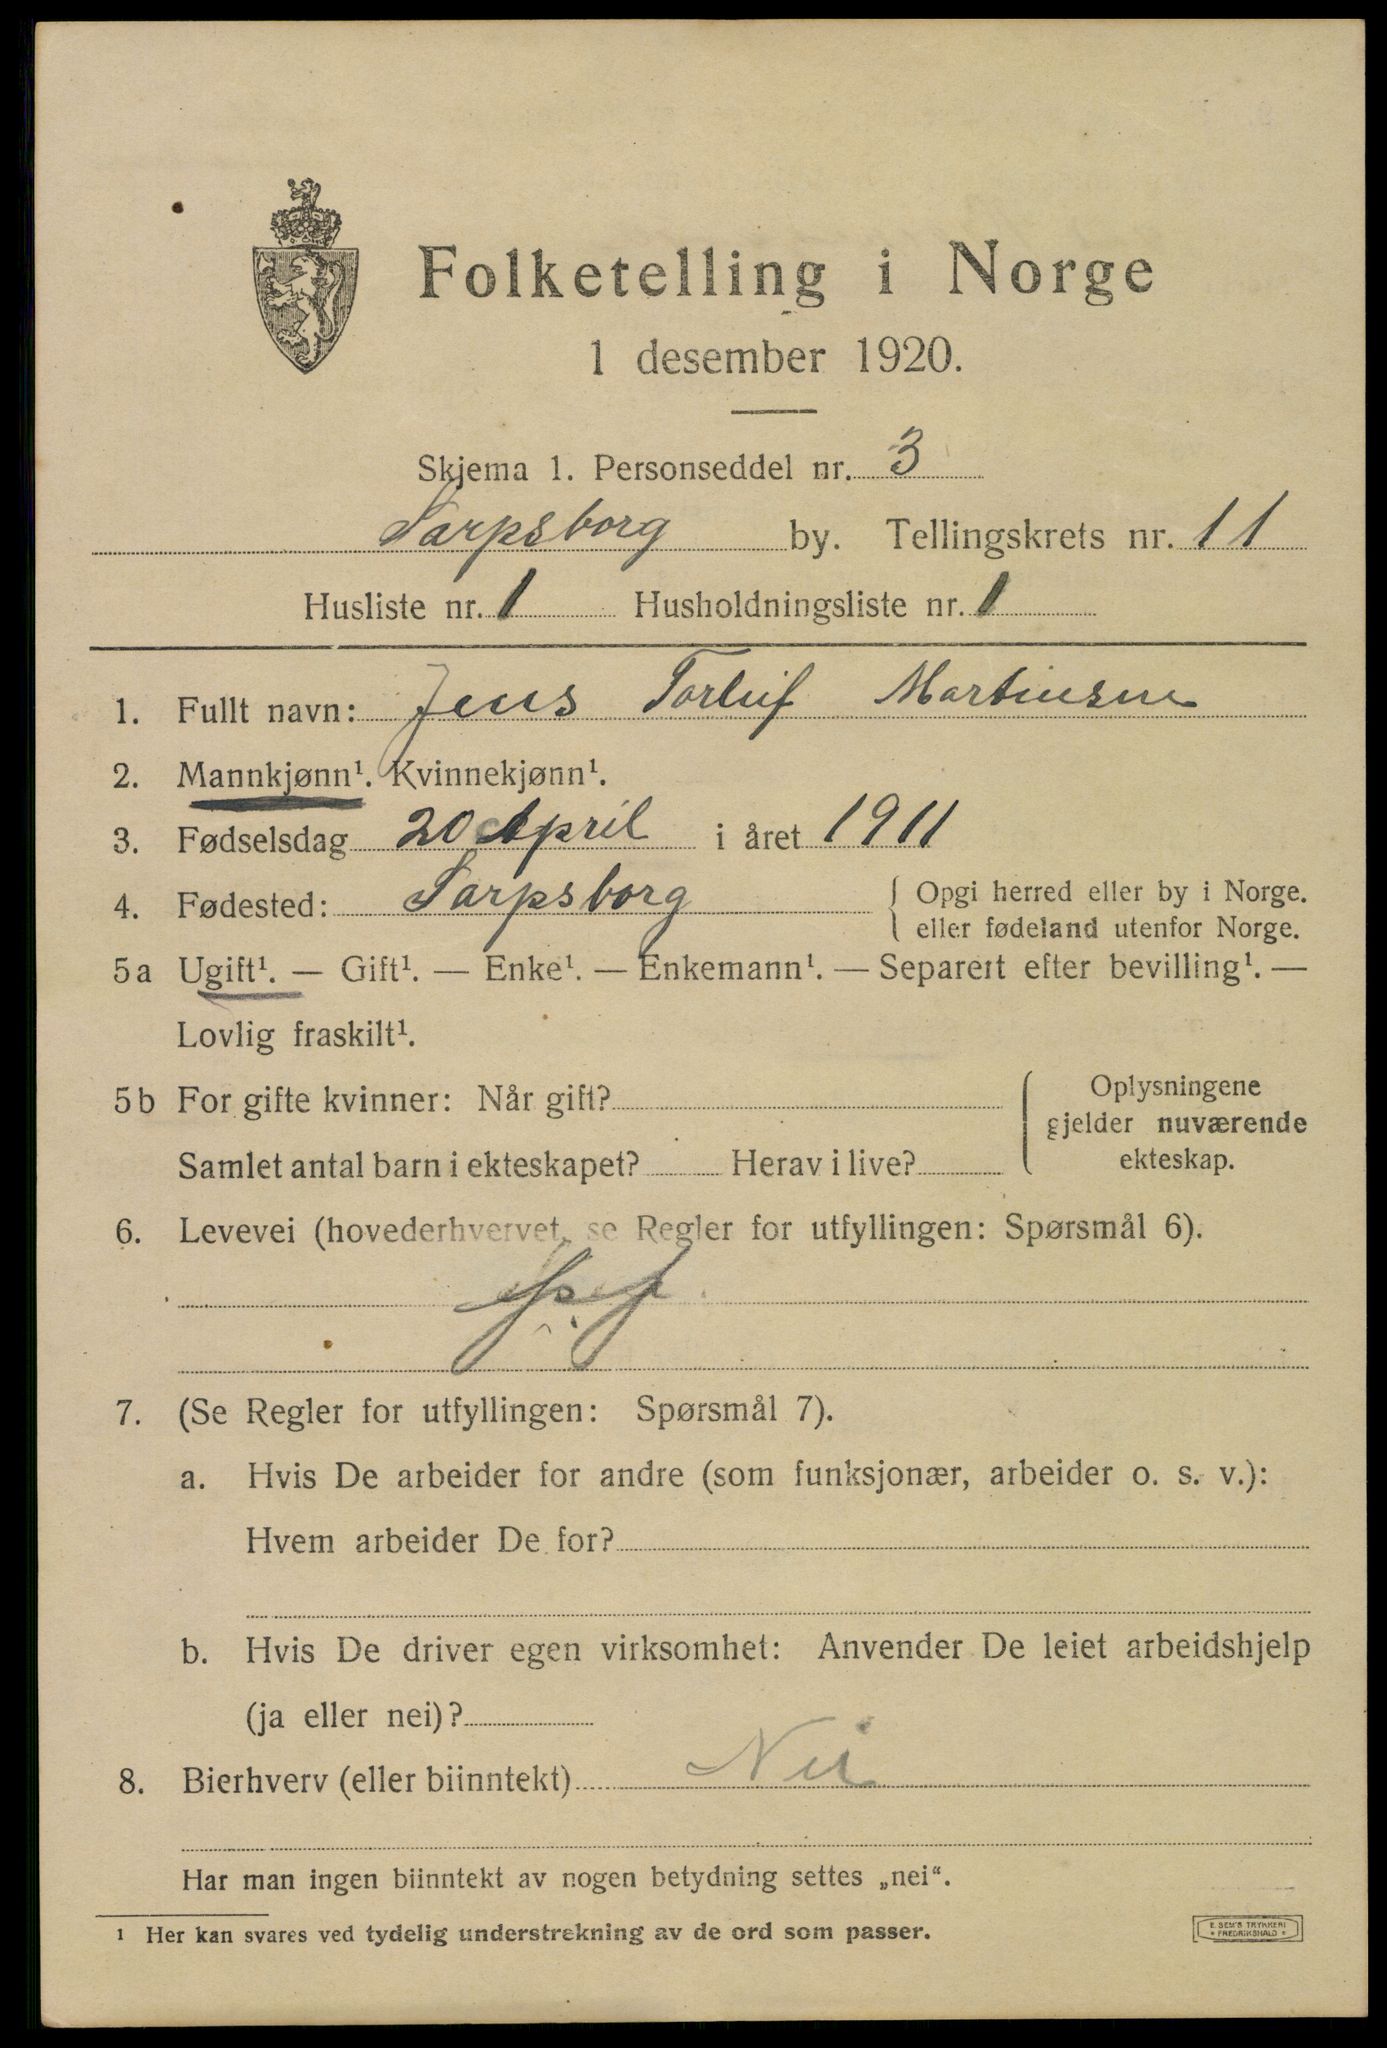 Folketelling i Norge
1 desember 1920.
Skjema 1. Personseddel nr. 3
Sarpsborg by. Tellingskrets nr. 11
Husliste nr. 1 Husholdningsliste nr. 1
1. Fullt navn: Jens Torleif Martinsen
2. Mannkjønn¹. Kvinnekjønn¹.
3. Fødselsdag 20 April i året 1911
4. Fødested: Sarpsborg { Opgi herred eller by i Norge.
eller fødeland utenfor Norge.
5a Ugift¹. — Gift¹. — Enke¹. — Enkemann¹. — Separert efter bevilling¹. —
Lovlig fraskilt¹.
5b For gifte kvinner: Når gift?
Samlet antal barn i ekteskapet? Herav i live?
Oplysningene
gjelder nuværende
ekteskap.
6. Levevei (hovederhvervet, se Regler for utfyllingen: Spørsmål 6).
7. (Se Regler for utfyllingen: Spørsmål 7).
a. Hvis De arbeider for andre (som funksjonær, arbeider o. s. v.):
Hvem arbeider De for?
b. Hvis De driver egen virksomhet: Anvender De leiet arbeidshjelp
(ja eller nei)?
8. Bierhverv (eller biinntekt) Nei
Har man ingen biinntekt av nogen betydning settes „nei“.
¹ Her kan svares ved tydelig understrekning av de ord som passer.
E. SEM'S TRYKKERI
* FREDRIKSHALD *